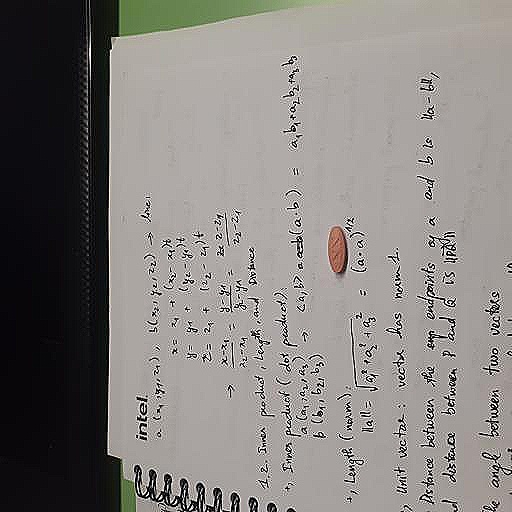 intel.
a (x₁, y₁, z₁), b(x₂, y₂, z₂) → line:
x = x₁ + (x₂ - x₁)t
y = y₁ + (y₂ - y₁)t
z = z₁ + (z₂ - z₁)t
→ x-x₁/x₂-x₁ = y-y₁/y₂-y₁ = z-z₁/z₂-z₁
1.2. Inner product, Length and Distance
+, Inner product (dot product):
a (a₁, a₂, a₃) → <a, b> (a·b) = a₁b₁+a₂b₂+a₃b₃
b (b₁, b₂, b₃)
+, Length (norm):
||a|| = √a₁²+a₂²+a₃² = (a·a)^1/2
Unit vector: vector has norm 1.
Distance between the endpoints of a and b is ||a-b||,
distance between P and Q is ||PQ||
angle between two vectors